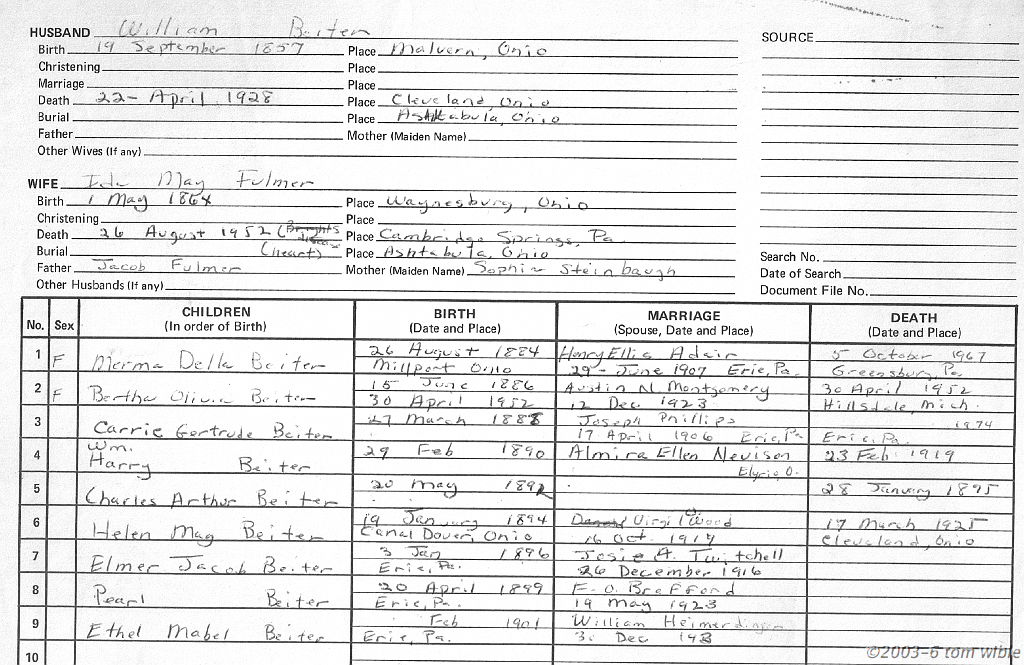 HUSBAND William Beiter
SOURCE
Birth 19 September 1857 Place Malvern, Ohio
Christening Place
Marriage Place
Death 22- April 1928 Place Cleveland, Ohio
Burial Place Ashtabula, Ohio
Father Mother (Maiden Name)
Other Wives (If any)
WIFE Ida May Fulmer
Birth 1 May 1864 Place Waynesburg, Ohio
Christening Place
Death 26 August 1952 (Brights disease Place Cambridge Springs, Pa.
Burial (heart) Place Ashtabula, Ohio
Father Jacob Fulmer Mother (Maiden Name) Sophia Steinbaugh
Other Husbands (If any)
Search No.
Date of Search
Document File No.
No. Sex CHILDREN (In order of Birth) BIRTH (Date and Place) MARRIAGE (Spouse, Date and Place) DEATH (Date and Place)
1 F Merma Della Beiter 26 August 1884 Henry Ellis Adair 5 October 1967
Millport Ohio 29- June 1907 Erie, Pa. Greensburg, Pa.
2 F Bertha Olivia Beiter 15 June 1886 Austin N. Montgomery 30 April 1952
30 April 1952 12 Dec 1923 Hillsdale, Mich.
3 Carrie Gertrude Beiter 27 March 1888 Joseph Phillips 1974
17 April 1906 Erie, Pa Erie, Pa.
4 Wm. Harry Beiter 29 Feb 1890 Almira Ellen Nevison 23 Feb 1919
Elyria O.
5 Charles Arthur Beiter 20 May 1892 28 January 1895
6 Helen May Beiter 19 January 1894 Virgil Wood 17 March 1925
Canal Dover, Ohio 16 Oct. 1917 Cleveland, Ohio
7 Elmer Jacob Beiter 3 Jan 1896 Josie A. Twitchell
Erie, Pa. 26 December 1916
8 Pearl Beiter 20 April 1899 F. O. Brefford
Erie, Pa. 19 May 1923
9 Ethel Mabel Beiter Feb 1901 William Heimerdinger
Erie, Pa. 30 Dec
10
©2003-6 tom wible